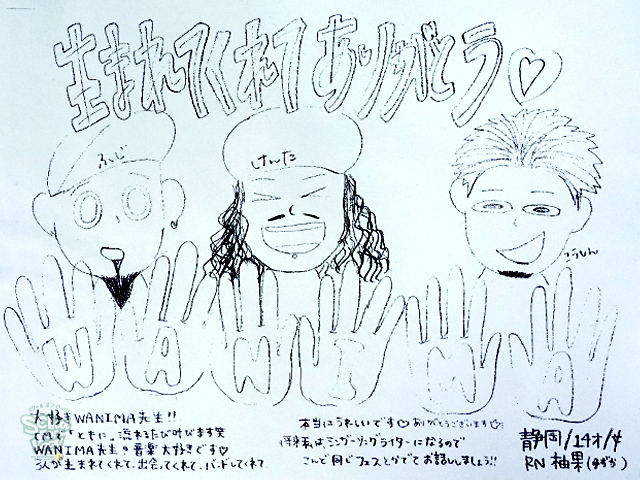 生まれてくれてありがとう♡
ふじ
けんた
こうしん
WANIMA
大好きWANIMA先生!!
CMで「ともに」流れるたび叫びます笑
WANIMA先生の音楽大好きです♡
3人が生まれてくれて、出会ってくれて、バンドしてくれて
本当にうれしいです♡ありがとうございます♡
将来はシンガーソングライターになるので
こんど同じフェスとかでてお話ししましょう!!
静岡/14才/女
RN 柚果(ゆずか)